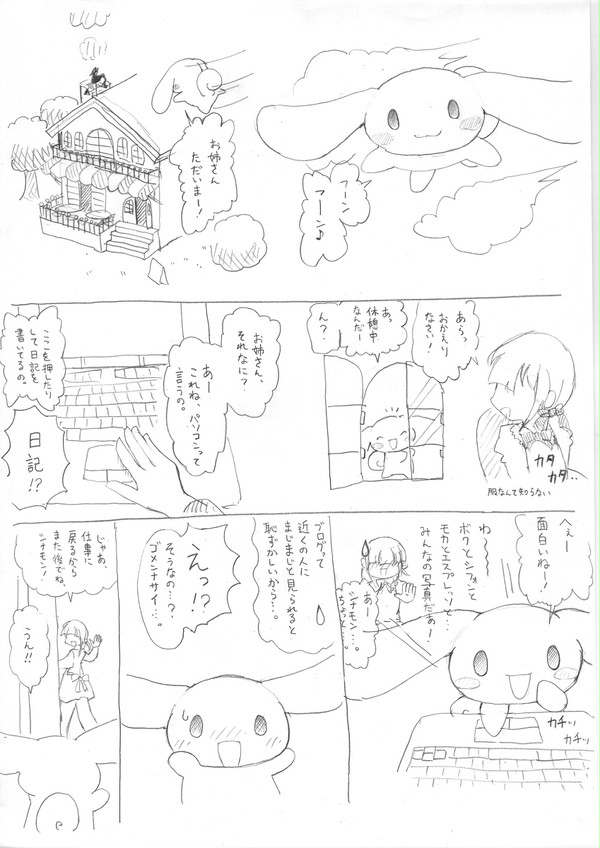 フーン
フーン♪
お姉さん
ただいまー!
あらっ
おかえり
なさい!
カタ
カタ…
服なんて知らない
あっ
休憩中
なんだー
ん?
お姉さん、
それなに?
あー
これね、パソコンって
言うの。
ここを押したり
して日記を
書いてるの。
日記!?
へぇー
面白いねー!
わー
ボクとシフォンと
モカとエスプレッソと…
みんなの写真だぁ!
カチッ
カチッ
あー
シナモン…。
ちょっと…。
ブログって
近くの人に
まじまじと見られると
恥ずかしいから…。
えっ!?
そうなの…?
ゴメンナサイ…。
じゃあ、
仕事に
戻るから
また後でね、
シナモン!
うん!!